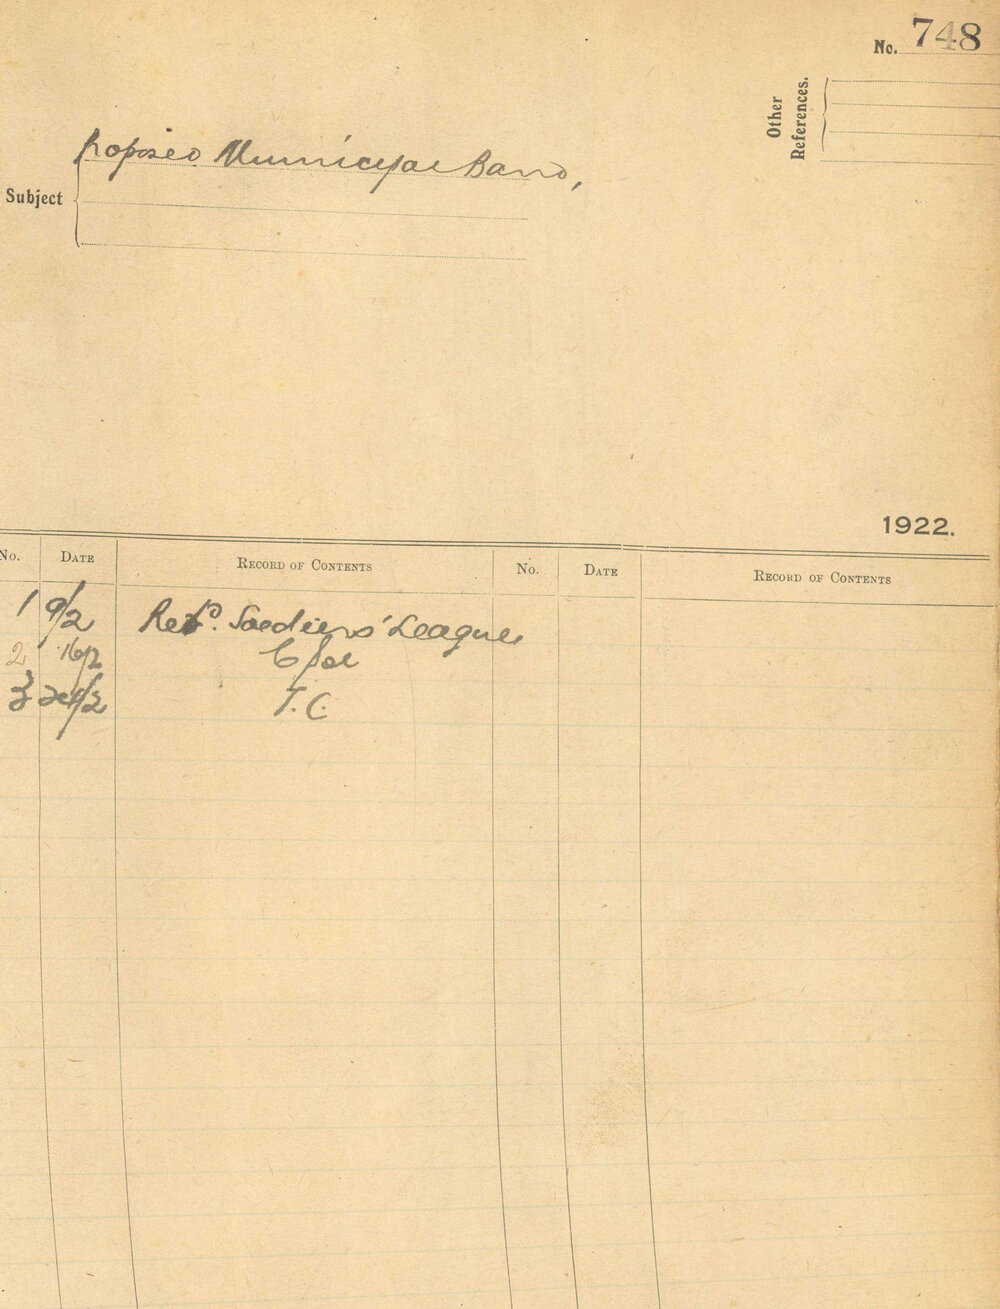 No. 748
Other
References.
Proposed Municipal Band,
Subject
1922.
No. DATE RECORD OF CONTENTS No. DATE RECORD OF CONTENTS
1 9/2 Retd. Soldiers' League
2 16/2
3 T.C.